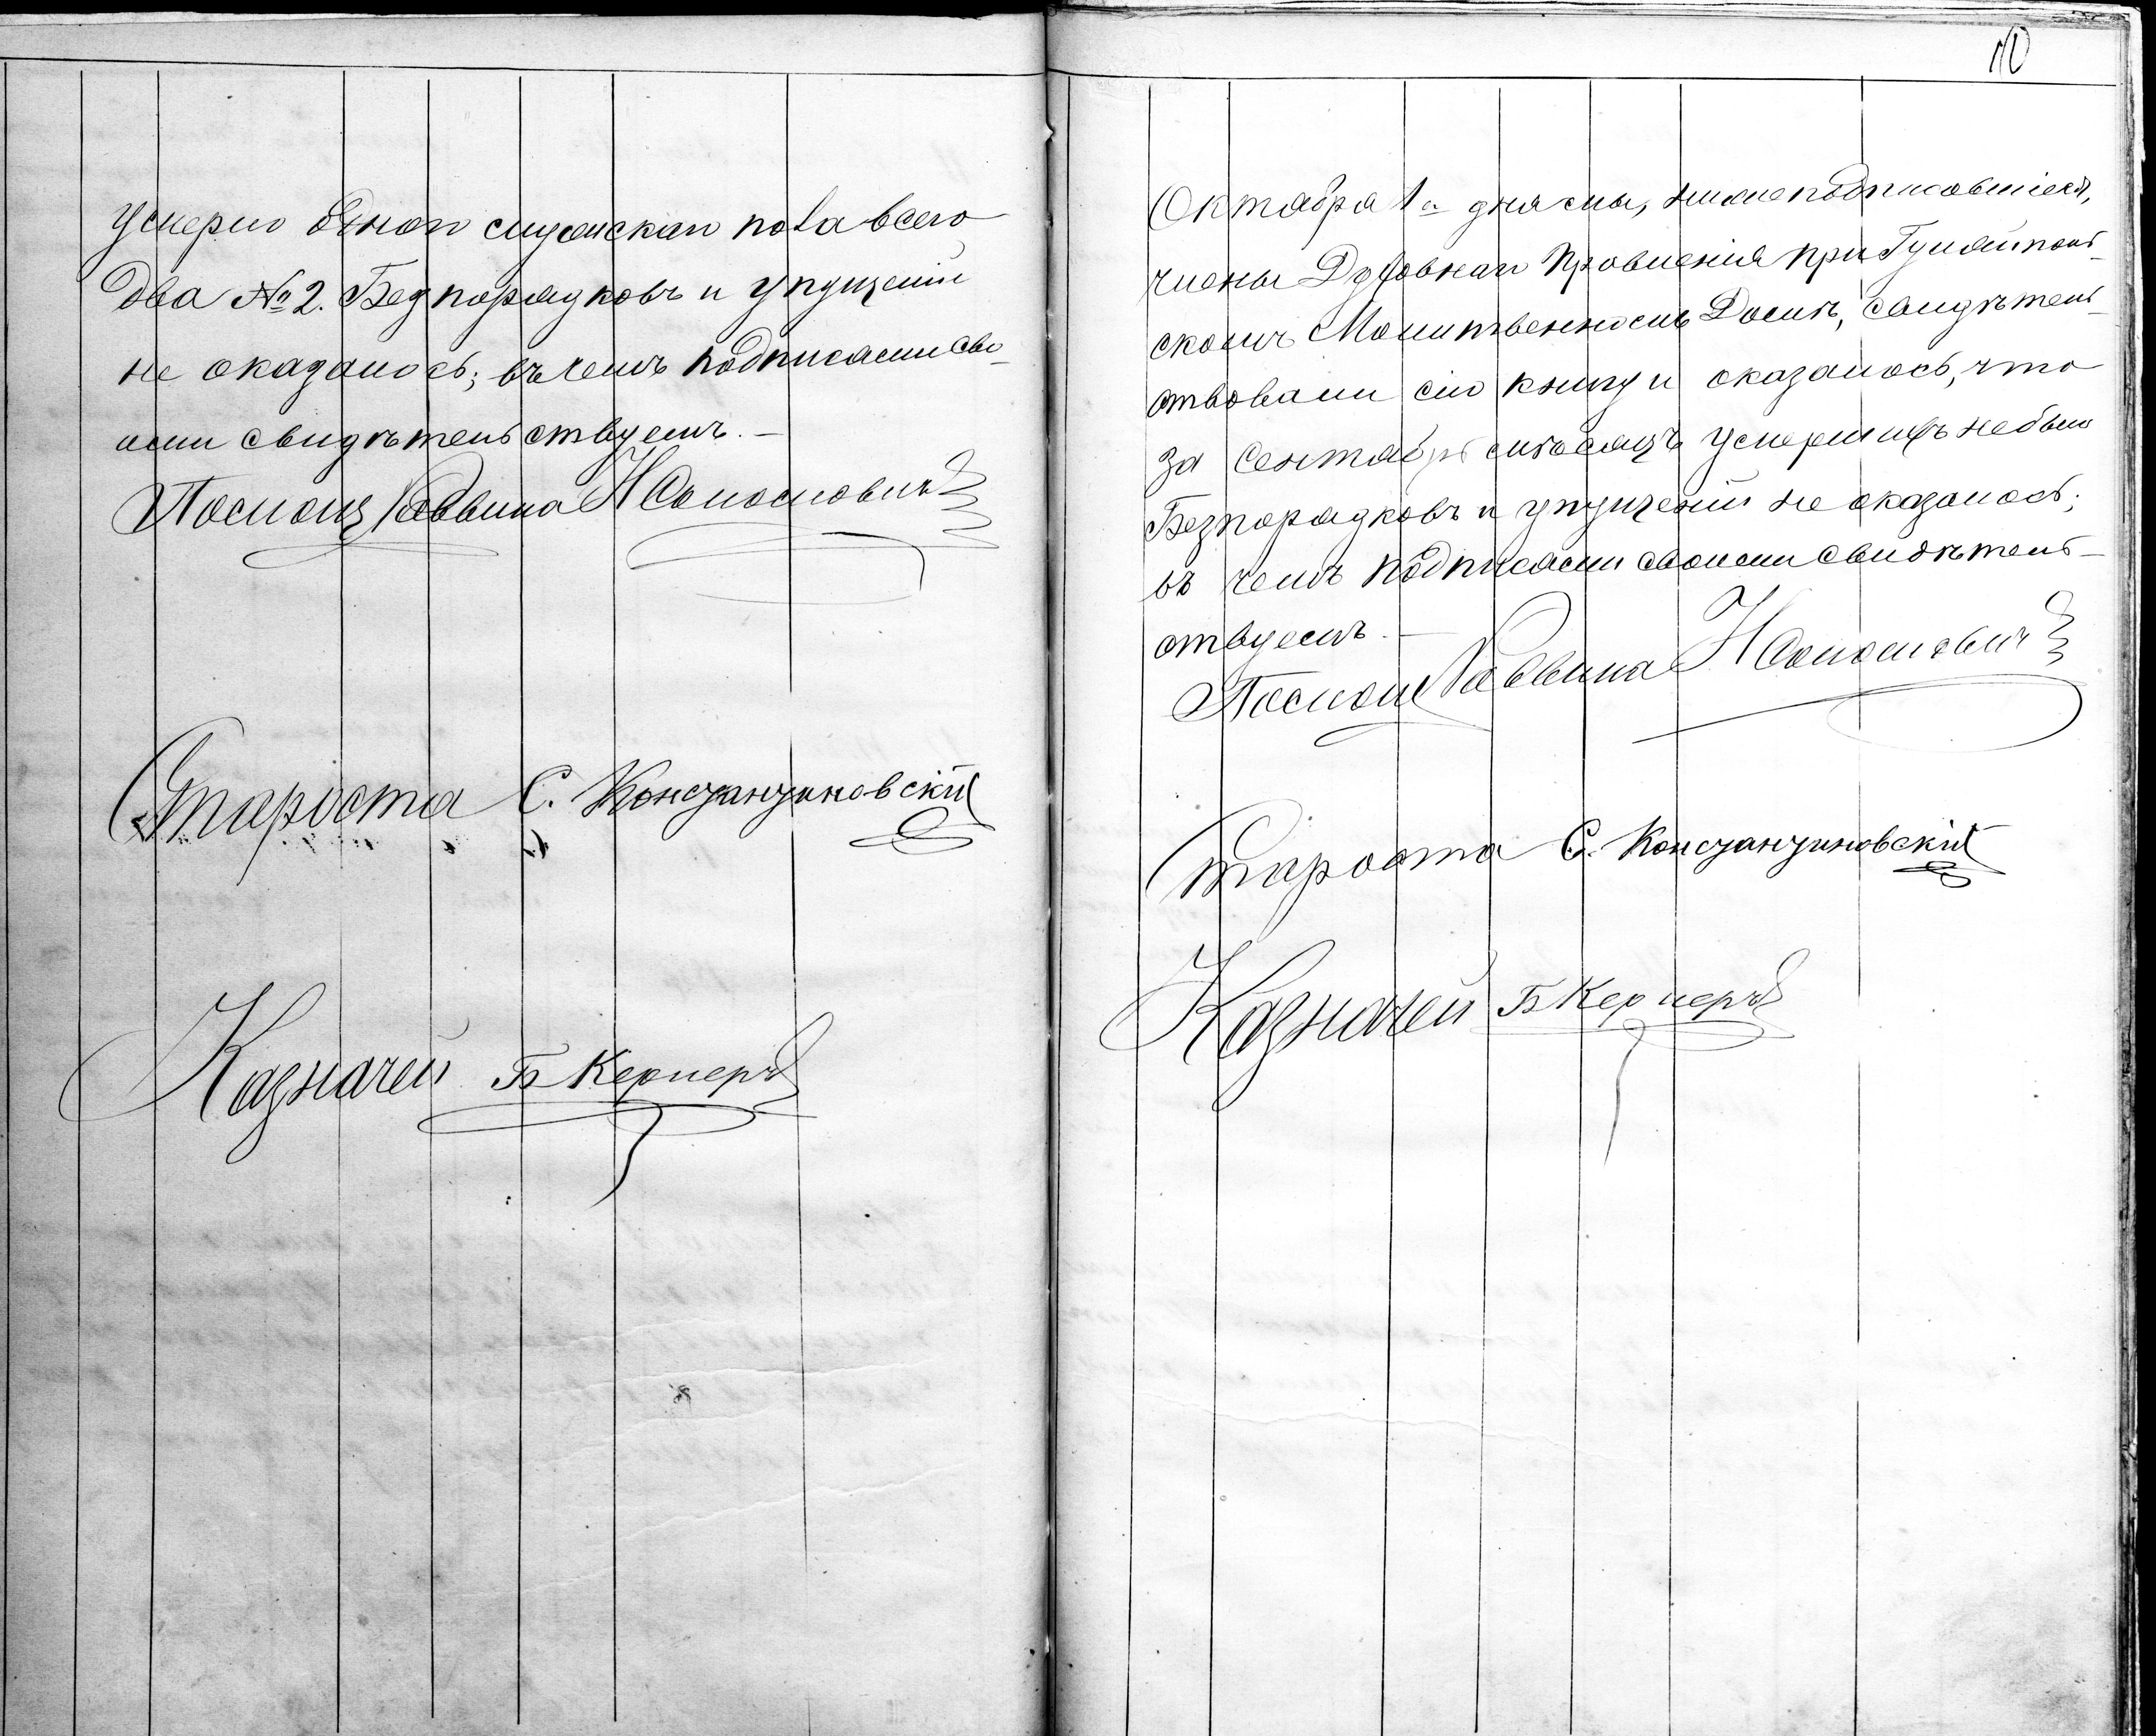 умерло однаго мужескаго пола всего
два № 2. Безпорядковъ и упущеній
не оказалось; въ чемъ подписами сво-
ими свидѣтельствуемъ. —
Помощ Раввина Н Соломоновичъ
Староста С. Константиновскій
Казначей Б Кернеръ
10
Октября 1го дня мы, нижеподписовшіеся,
члены Духовнаго Правленія при Гуляйполь-
скомъ Молитвенномъ Домѣ, свидѣтель-
ствовали сію книгу и оказалось, что
за Сентябрь мѣсяцъ умершихъ небыло
Безпорядковъ и упущеній не оказалось;
въ чемъ подписами своими свидѣтель-
ствуемъ. —
Помощ Раввина Н Соломоновичъ
Староста С. Константиновскій
Казначей Б Кернеръ